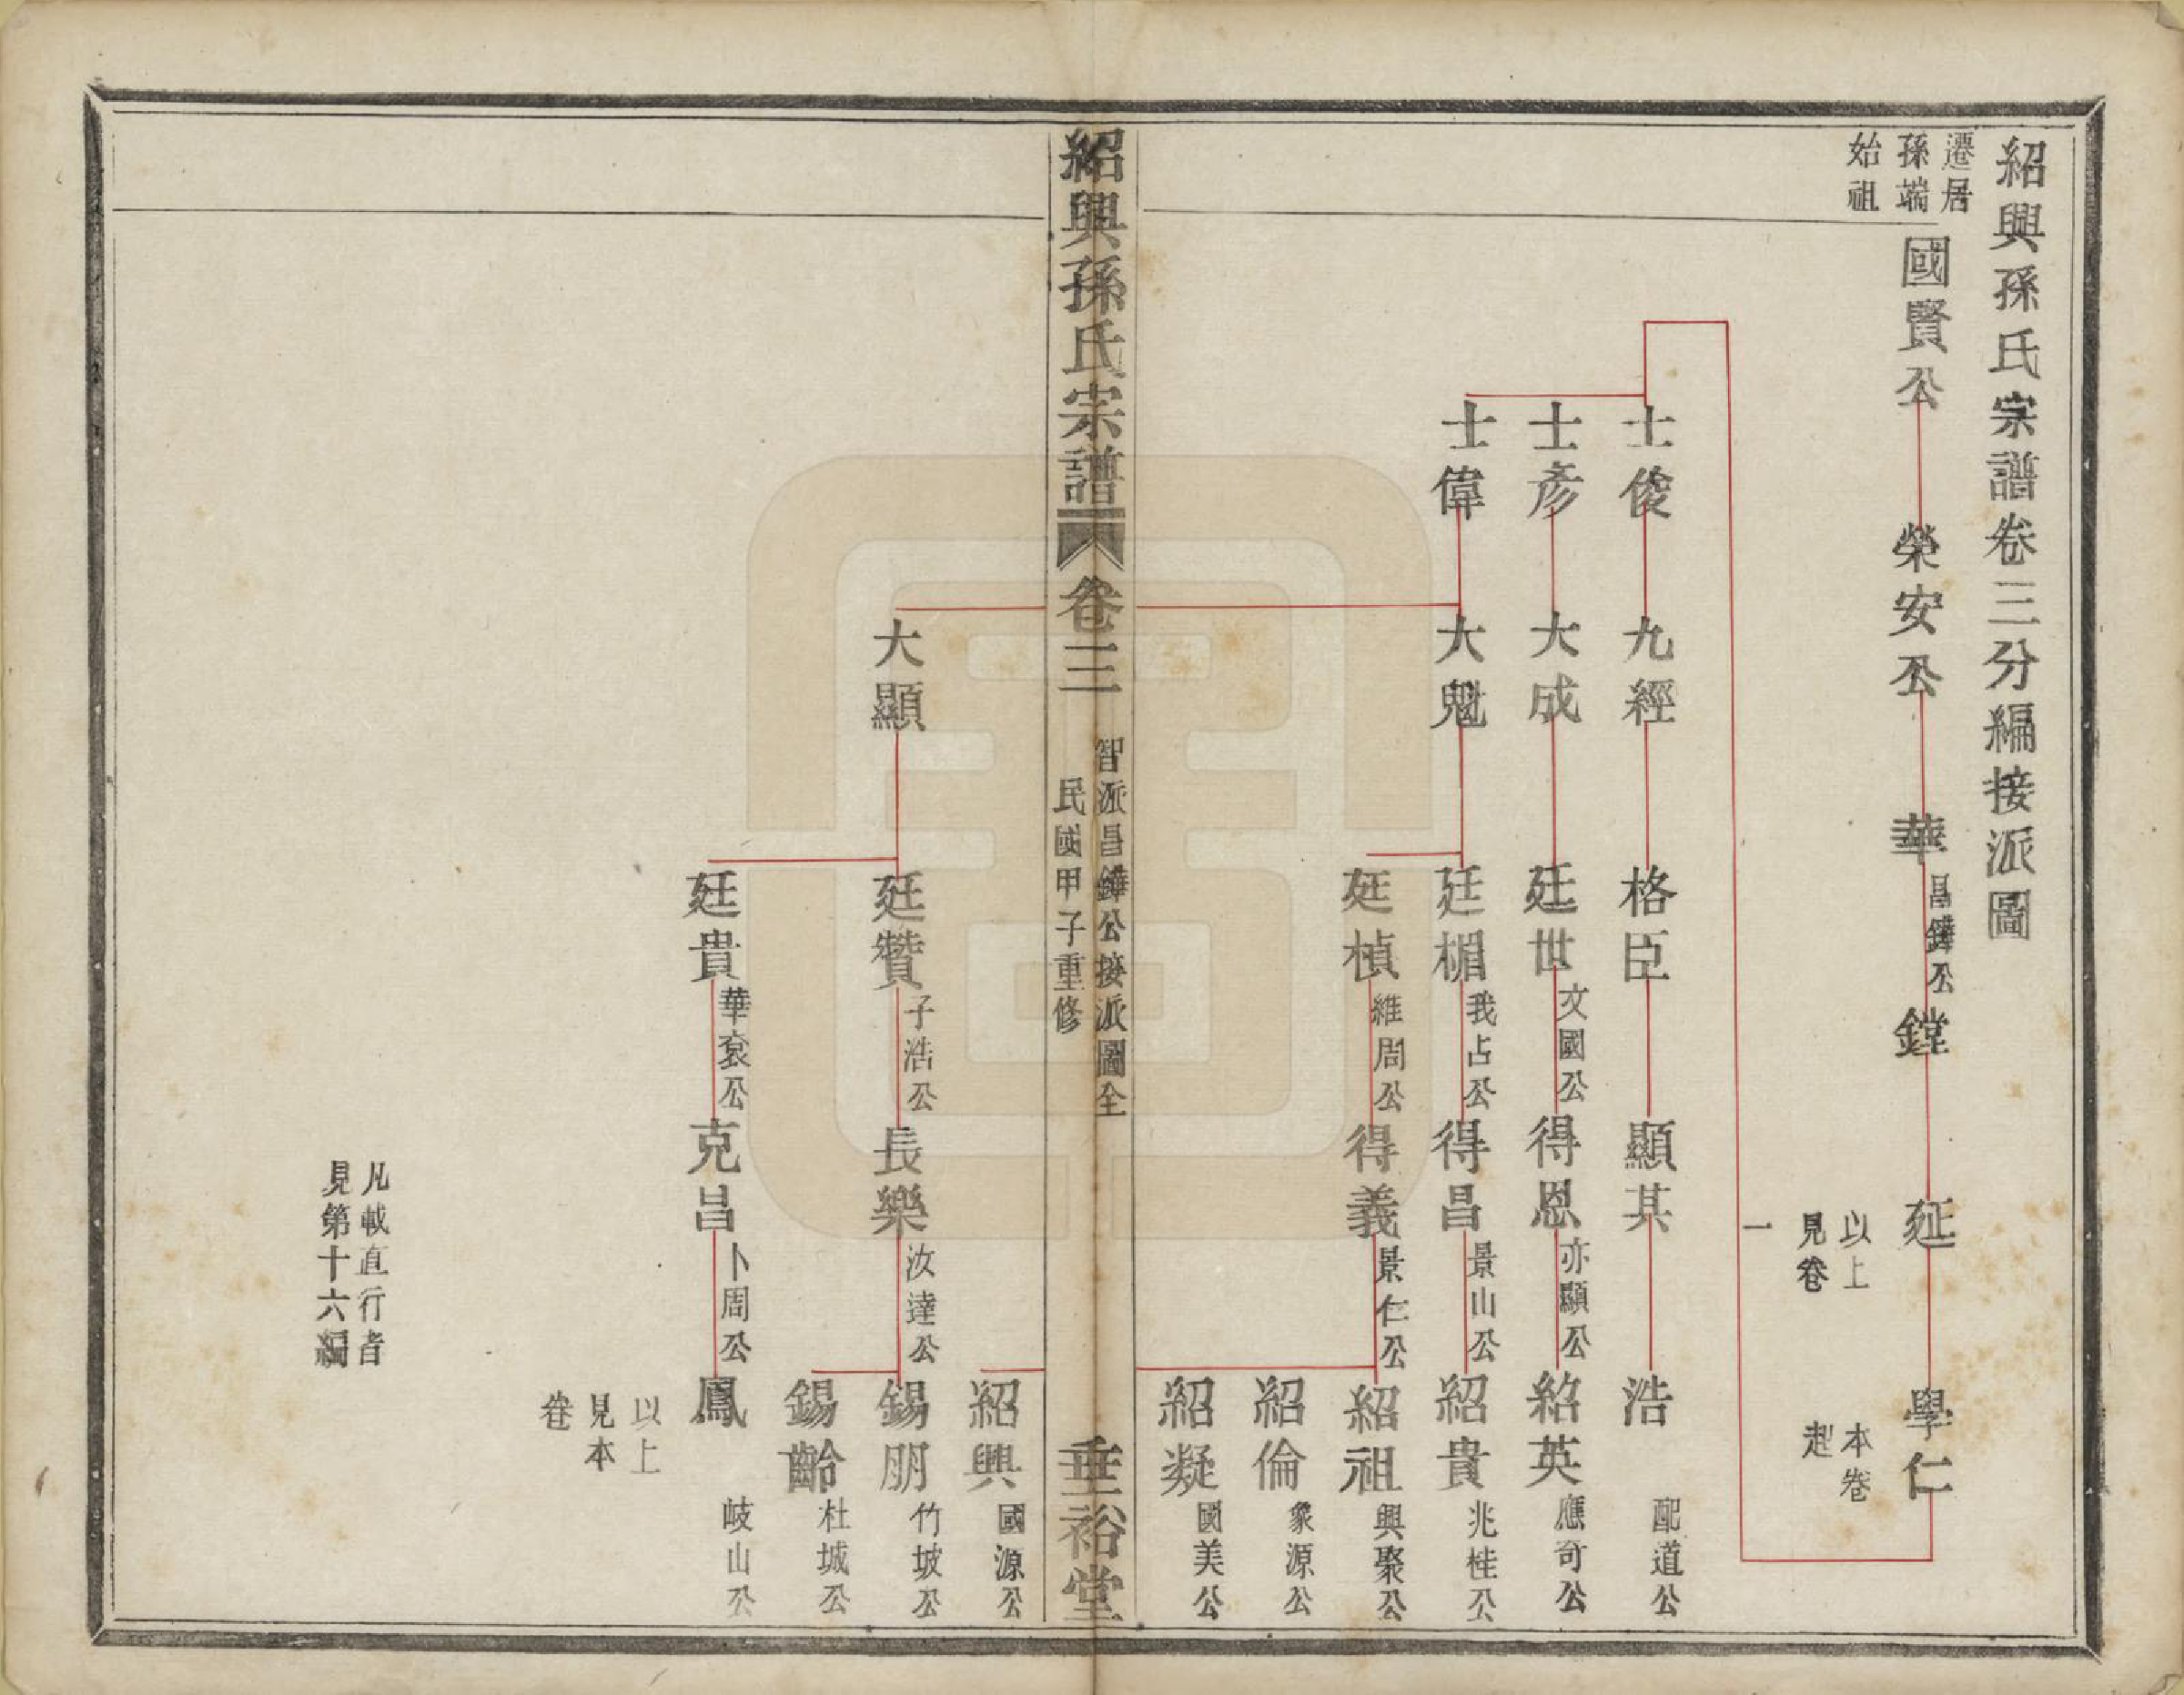 紹興孫氏宗譜卷三分編接派圖
遷居
孫端
始祖
國賢公
榮安公
華
昌鏵公
鏜
延
學仁
以上
見卷
一
本卷
起
士俊
九經
格臣
顯其
浩
配道公
士彥
大成
廷世
文國公
得恩
亦顯公
紹英
應奇公
士偉
大魁
廷楣
我占公
得昌
景山公
紹貴
兆桂公
廷楨
維周公
得義
景仁公
紹祖
興聚公
紹倫
象源公
紹凝
國美公
紹興孫氏宗譜
卷三
智派昌鏵公接派圖全
民國甲子重修
垂裕堂
紹興
國源公
大顯
廷贊
子浩公
長樂
汝達公
錫朋
竹坡公
錫齡
杜城公
廷貴
華袞公
克昌
卜周公
鳳
岐山公
以上
見本
卷
凡載直行者
見第十六編